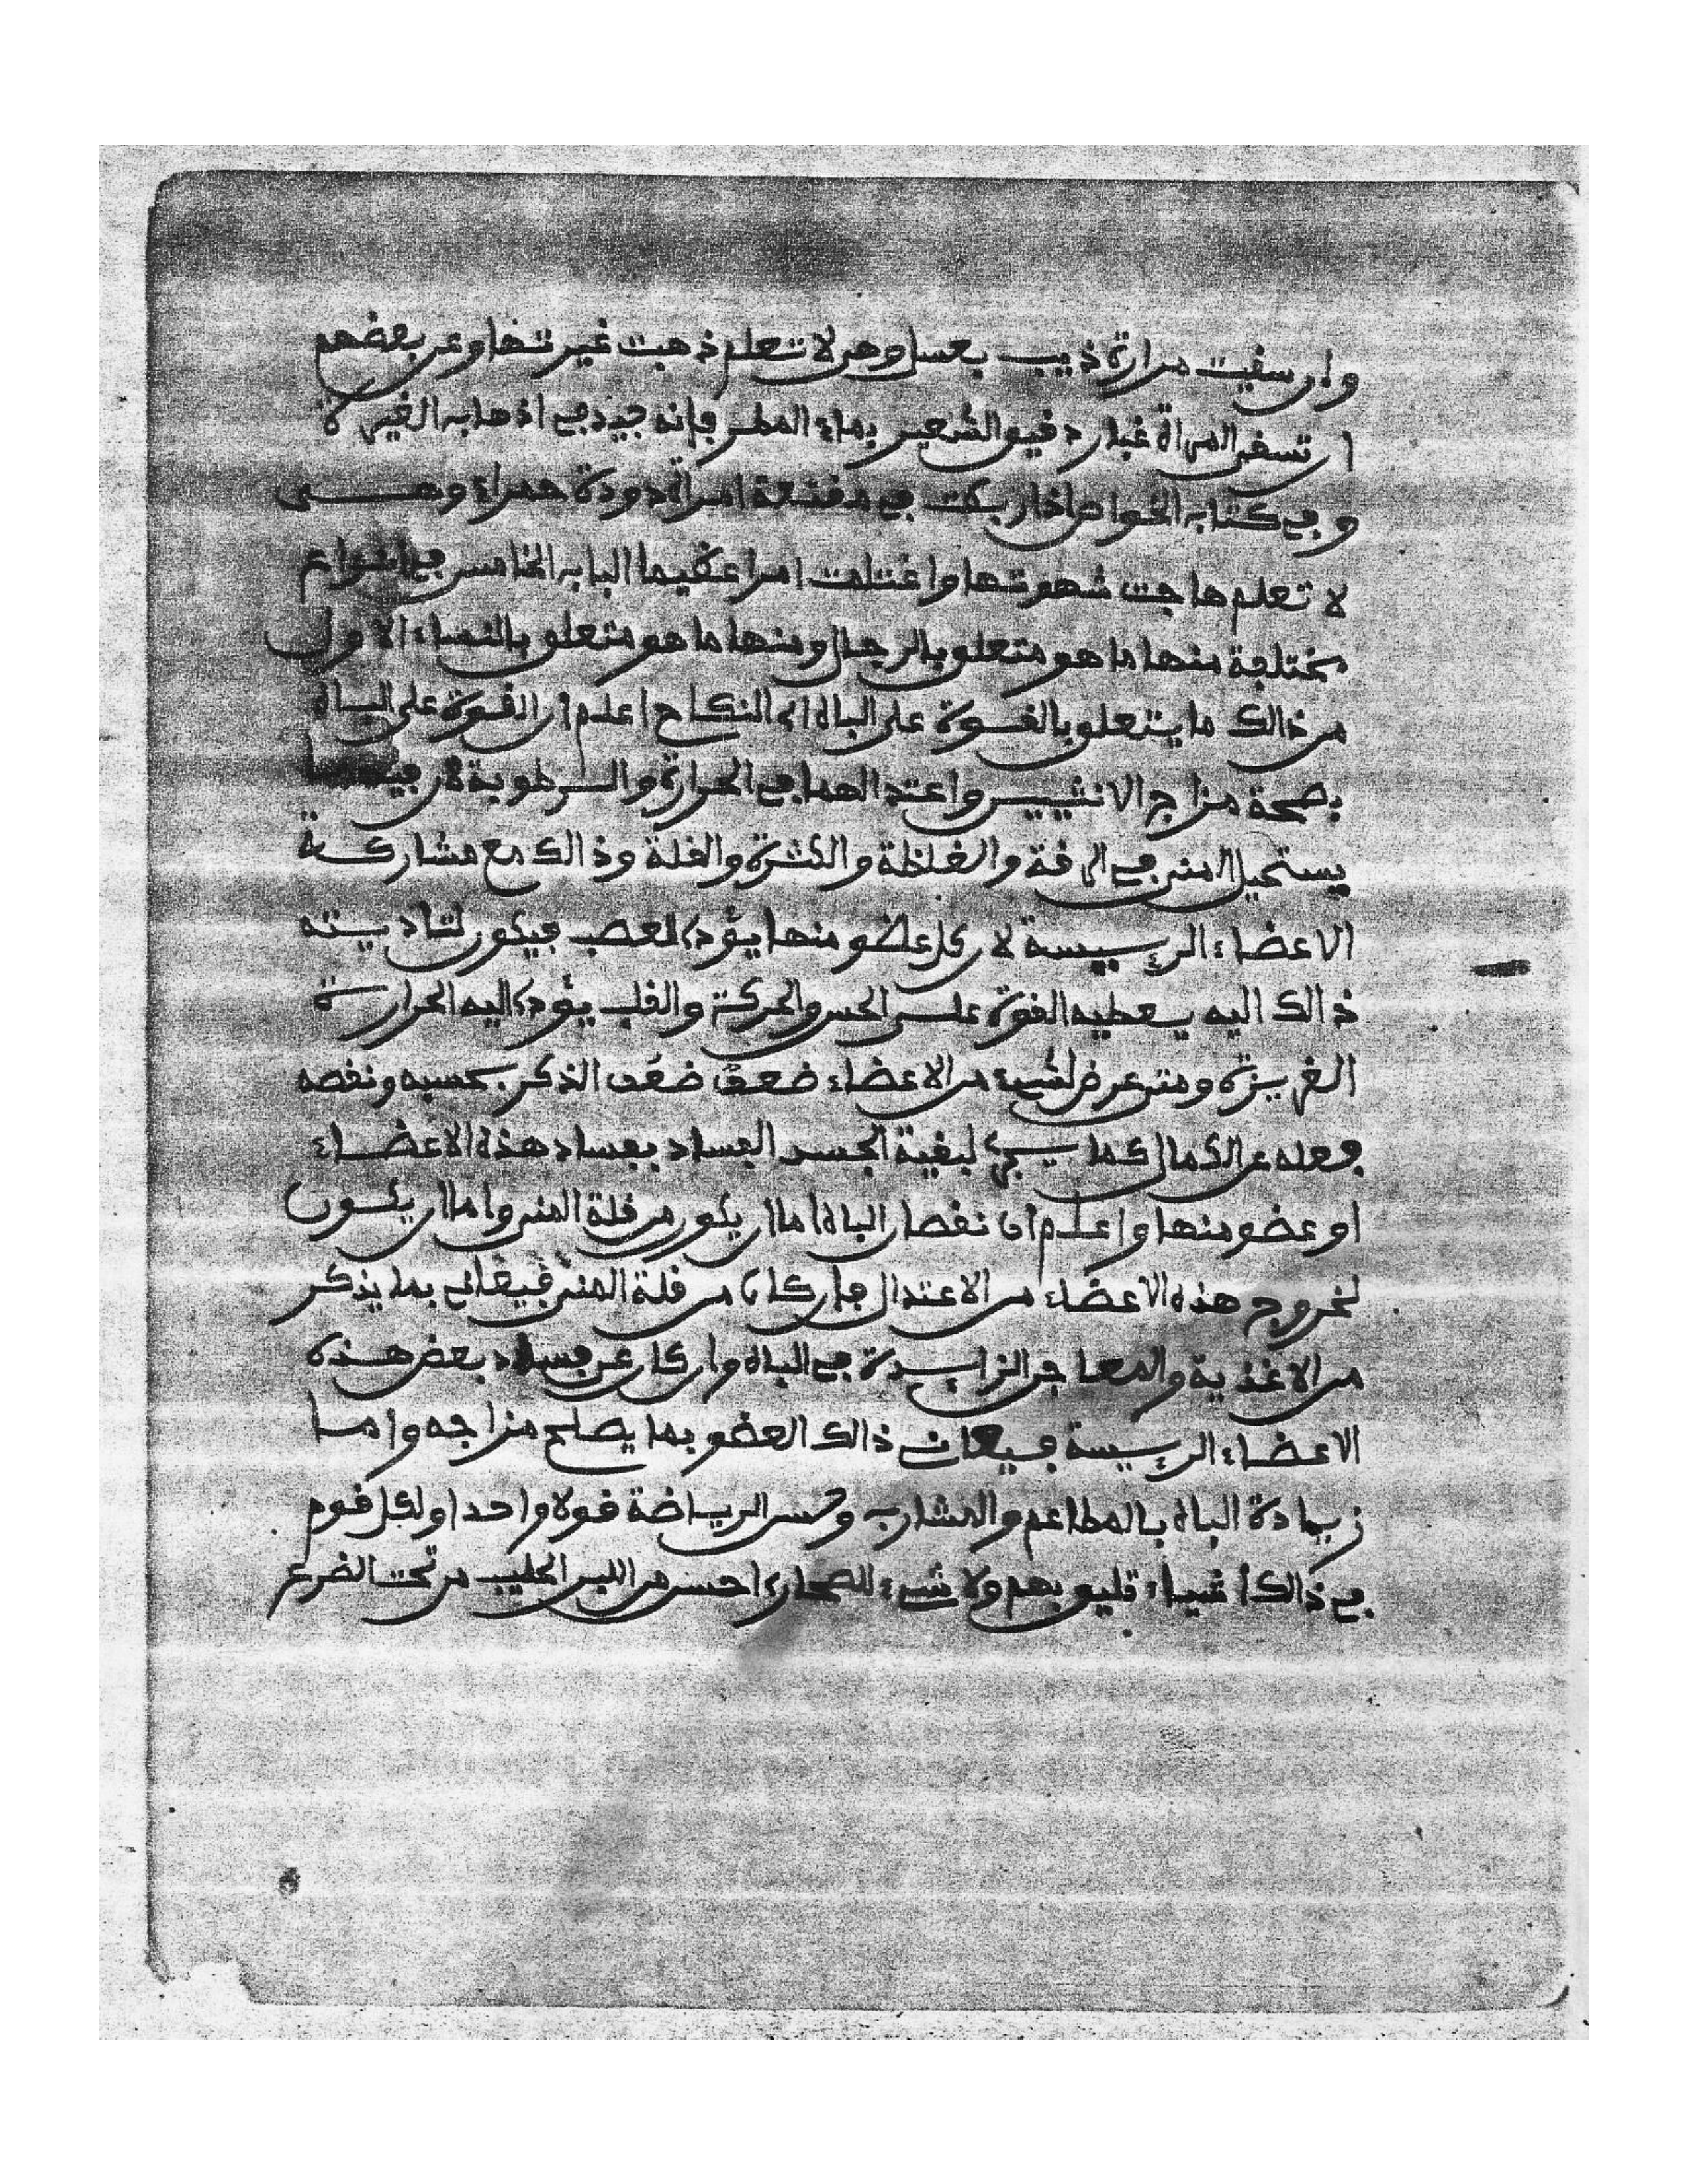 وان سقيت مرارة ذيب بعسل وهي لا تعلم ذهبت غيرتها وعن بعضهم
ان تسقى المراة غبار دقيق الشعير بماء المطر فإنه جيد في اذهاب الغيرة
وفي كتاب الخواص اذا ربطت في مقنعة امراة دودة حمراء وهي
لا تعلم هاجت شهوتها واغتلمت امرا عظيما الباب الخامس في انواع
مختلفة منها ما هو متعلق بالرجال ومنها ما هو متعلق بالنساء الاول
من ذالك ما يتعلق بالقوة على الباه اي النكاح اعلم ان القوة على الباه
بصحة مزاج الانثيين واعتدالهما في الحرارة والرطوبة لان فيهما
يستحيل المني في الرقة والغلظة والكثرة والقلة وذالك مع مشاركة
الاعضاء الرييسة لان كل عضو منها يؤدي لعصب فيكون لتاديته
ذالك اليه يعطيه القوة على الحس والحركة والقلب يؤدي اليه الحرارة
الغريزة ومتى عرض لشيء من الاعضاء ضعف ضعف الذكر بحسبه ونقصه
فعله عن الكمال كما يجري لبقية الجسد الفساد بفساد هذه الاعضاء
او عضو منها واعلم ان نقصان الباه اما ان يكون من قلة المني واما ان يكون
لخروج هذه الاعضاء من الاعتدال فان كان من قلة المني فيعانى بما يذكر
من الاغذية والمعاجن الزايدة في الباه وان كان عن فساد بعض هذه
الاعضاء الرييسة فيعان ذالك العضو بما يصلح مزاجه واما
زيادة الباه بالمطاعم والمشارب وحسن الرياضة قولا واحدا ولكل قوم
في ذالك اشياء تليق بهم ولا شيء للصحاري احسن من اللبن الحليب من تحت الضرع